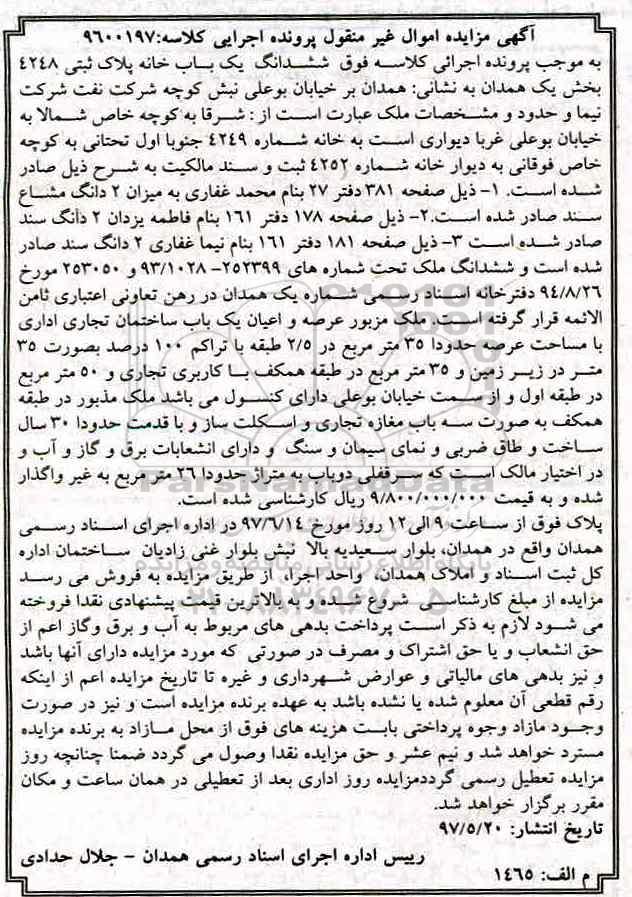 آگهی مزایده اموال غیر منقول پرونده اجرایی کلاسه:۹۶۰۰۱۹۷
به موجب پرونده اجرائی کلاسه فوق ششدانگ یک باب خانه پلاک ثبتی ۴۲۴۸
بخش یک همدان به نشانی: همدان بر خیابان بوعلی نبش کوچه شرکت نفت شرکت
نیما و حدود و مشخصات ملک عبارت است از : شرقا به کوچه خاص شمالا به
خیابان بوعلی غربا دیواری است به خانه شماره ۴۲۴۹ جنوبا اول تحتانی به کوچه
خاص فوقانی به دیوار خانه شماره ۴۲۵۲ ثبت و سند مالکیت به شرح ذیل صادر
شده است. ۱- ذیل صفحه ۳۸۱ دفتر ۲۷ بنام محمد غفاری به میزان ۲ دانگ مشاع
سند صادر شده است.۲- ذیل صفحه ۱۷۸ دفتر ۱۶۱ بنام فاطمه یزدان ۲ دانگ سند
صادر شده است ۳- ذیل صفحه ۱۸۱ دفتر ۱۶۱ بنام نیما غفاری ۲ دانگ سند صادر
شده است و ششدانگ ملک تحت شماره های ۲۵۲۳۹۹- ۹۳/۱۰۲۸ و ۲۵۳۰۵۰ مورخ
۹۴/۸/۲۶ دفترخانه اسناد رسمی شماره یک همدان در رهن تعاونی اعتباری ثامن
الائمه قرار گرفته است. ملک مزبور عرصه و اعیان یک باب ساختمان تجاری اداری
با مساحت عرصه حدودا ۳۵ متر مربع در ۲/۵ طبقه با تراکم ۱۰۰ درصد بصورت ۳۵
متر در زیر زمین و ۳۵ متر مربع در طبقه همکف با کاربری تجاری و ۵۰ متر مربع
در طبقه اول و از سمت خیابان بوعلی دارای کنسول می باشد ملک مذبور در طبقه
همکف به صورت سه باب مغازه تجاری و اسکلت ساز و با قدمت حدودا ۳۰ سال
ساخت و طاق ضربی و نمای سیمان و سنگ و دارای انشعابات برق و گاز و آب و
در اختیار مالک است که سرقفلی دوباب به متراژ حدودا ۲۶ متر مربع به غیر واگذار
شده و به قیمت ۹/۸۰۰/۰۰۰/۰۰۰ ریال کارشناسی شده است.
پلاک فوق از ساعت ۹ الی۱۲ روز مورخ ۹۷/۶/۱۴ در اداره اجرای اسناد رسمی
همدان واقع در همدان، بلوار سعیدیه بالا نبش بلوار غنی زادیان ساختمان اداره
کل ثبت اسناد و املاک همدان، واحد اجرا، از طریق مزایده به فروش می رسد
مزایده از مبلغ کارشناسی شروع شده و به بالاترین قیمت پیشنهادی نقدا فروخته
می شود لازم به ذکر است پرداخت بدهی های مربوط به آب و برق وگاز اعم از
حق انشعاب و یا حق اشتراک و مصرف در صورتی که مورد مزایده دارای آنها باشد
و نیز بدهی های مالیاتی و عوارض شهرداری و غیره تا تاریخ مزایده اعم از اینکه
رقم قطعی آن معلوم شده یا نشده باشد به عهده برنده مزایده است و نیز در صورت
وجود مازاد وجوه پرداختی بابت هزینه های فوق از محل مازاد به برنده مزایده
مسترد خواهد شد و نیم عشر و حق مزایده نقدا وصول می گردد ضمنا چنانچه روز
مزایده تعطیل رسمی گرددمزایده روز اداری بعد از تعطیلی در همان ساعت و مکان
مقرر برگزار خواهد شد.
تاریخ انتشار: ۹۷/۵/۲۰
رییس اداره اجرای اسناد رسمی همدان - جلال حدادی
م الف: ۱۴۶۵
ParsNamadData
پایگاه اطلاع رسانی مناقصه و مزایده
۰۲۱-۸۸۳۴۹۶۷۰-۵